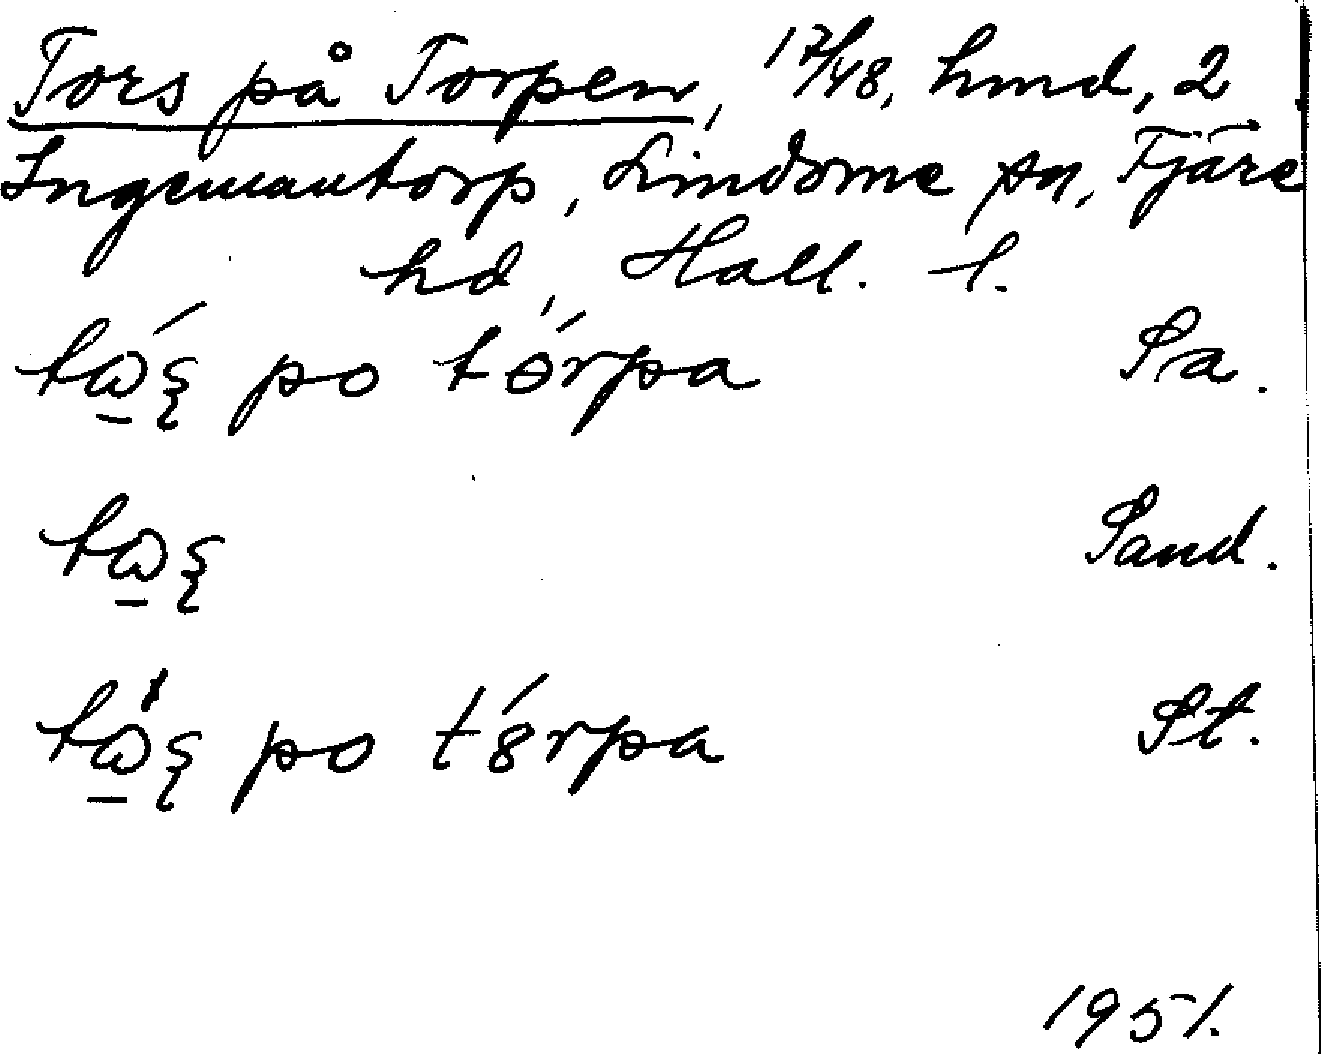 Tors på Torpen, 17/48, hmd, 2
Ingemantorp, Lindome sn, Fjäre
hd, Hall. l.
po tɵ́rpa Sa.
Sand.
po St.
1951.